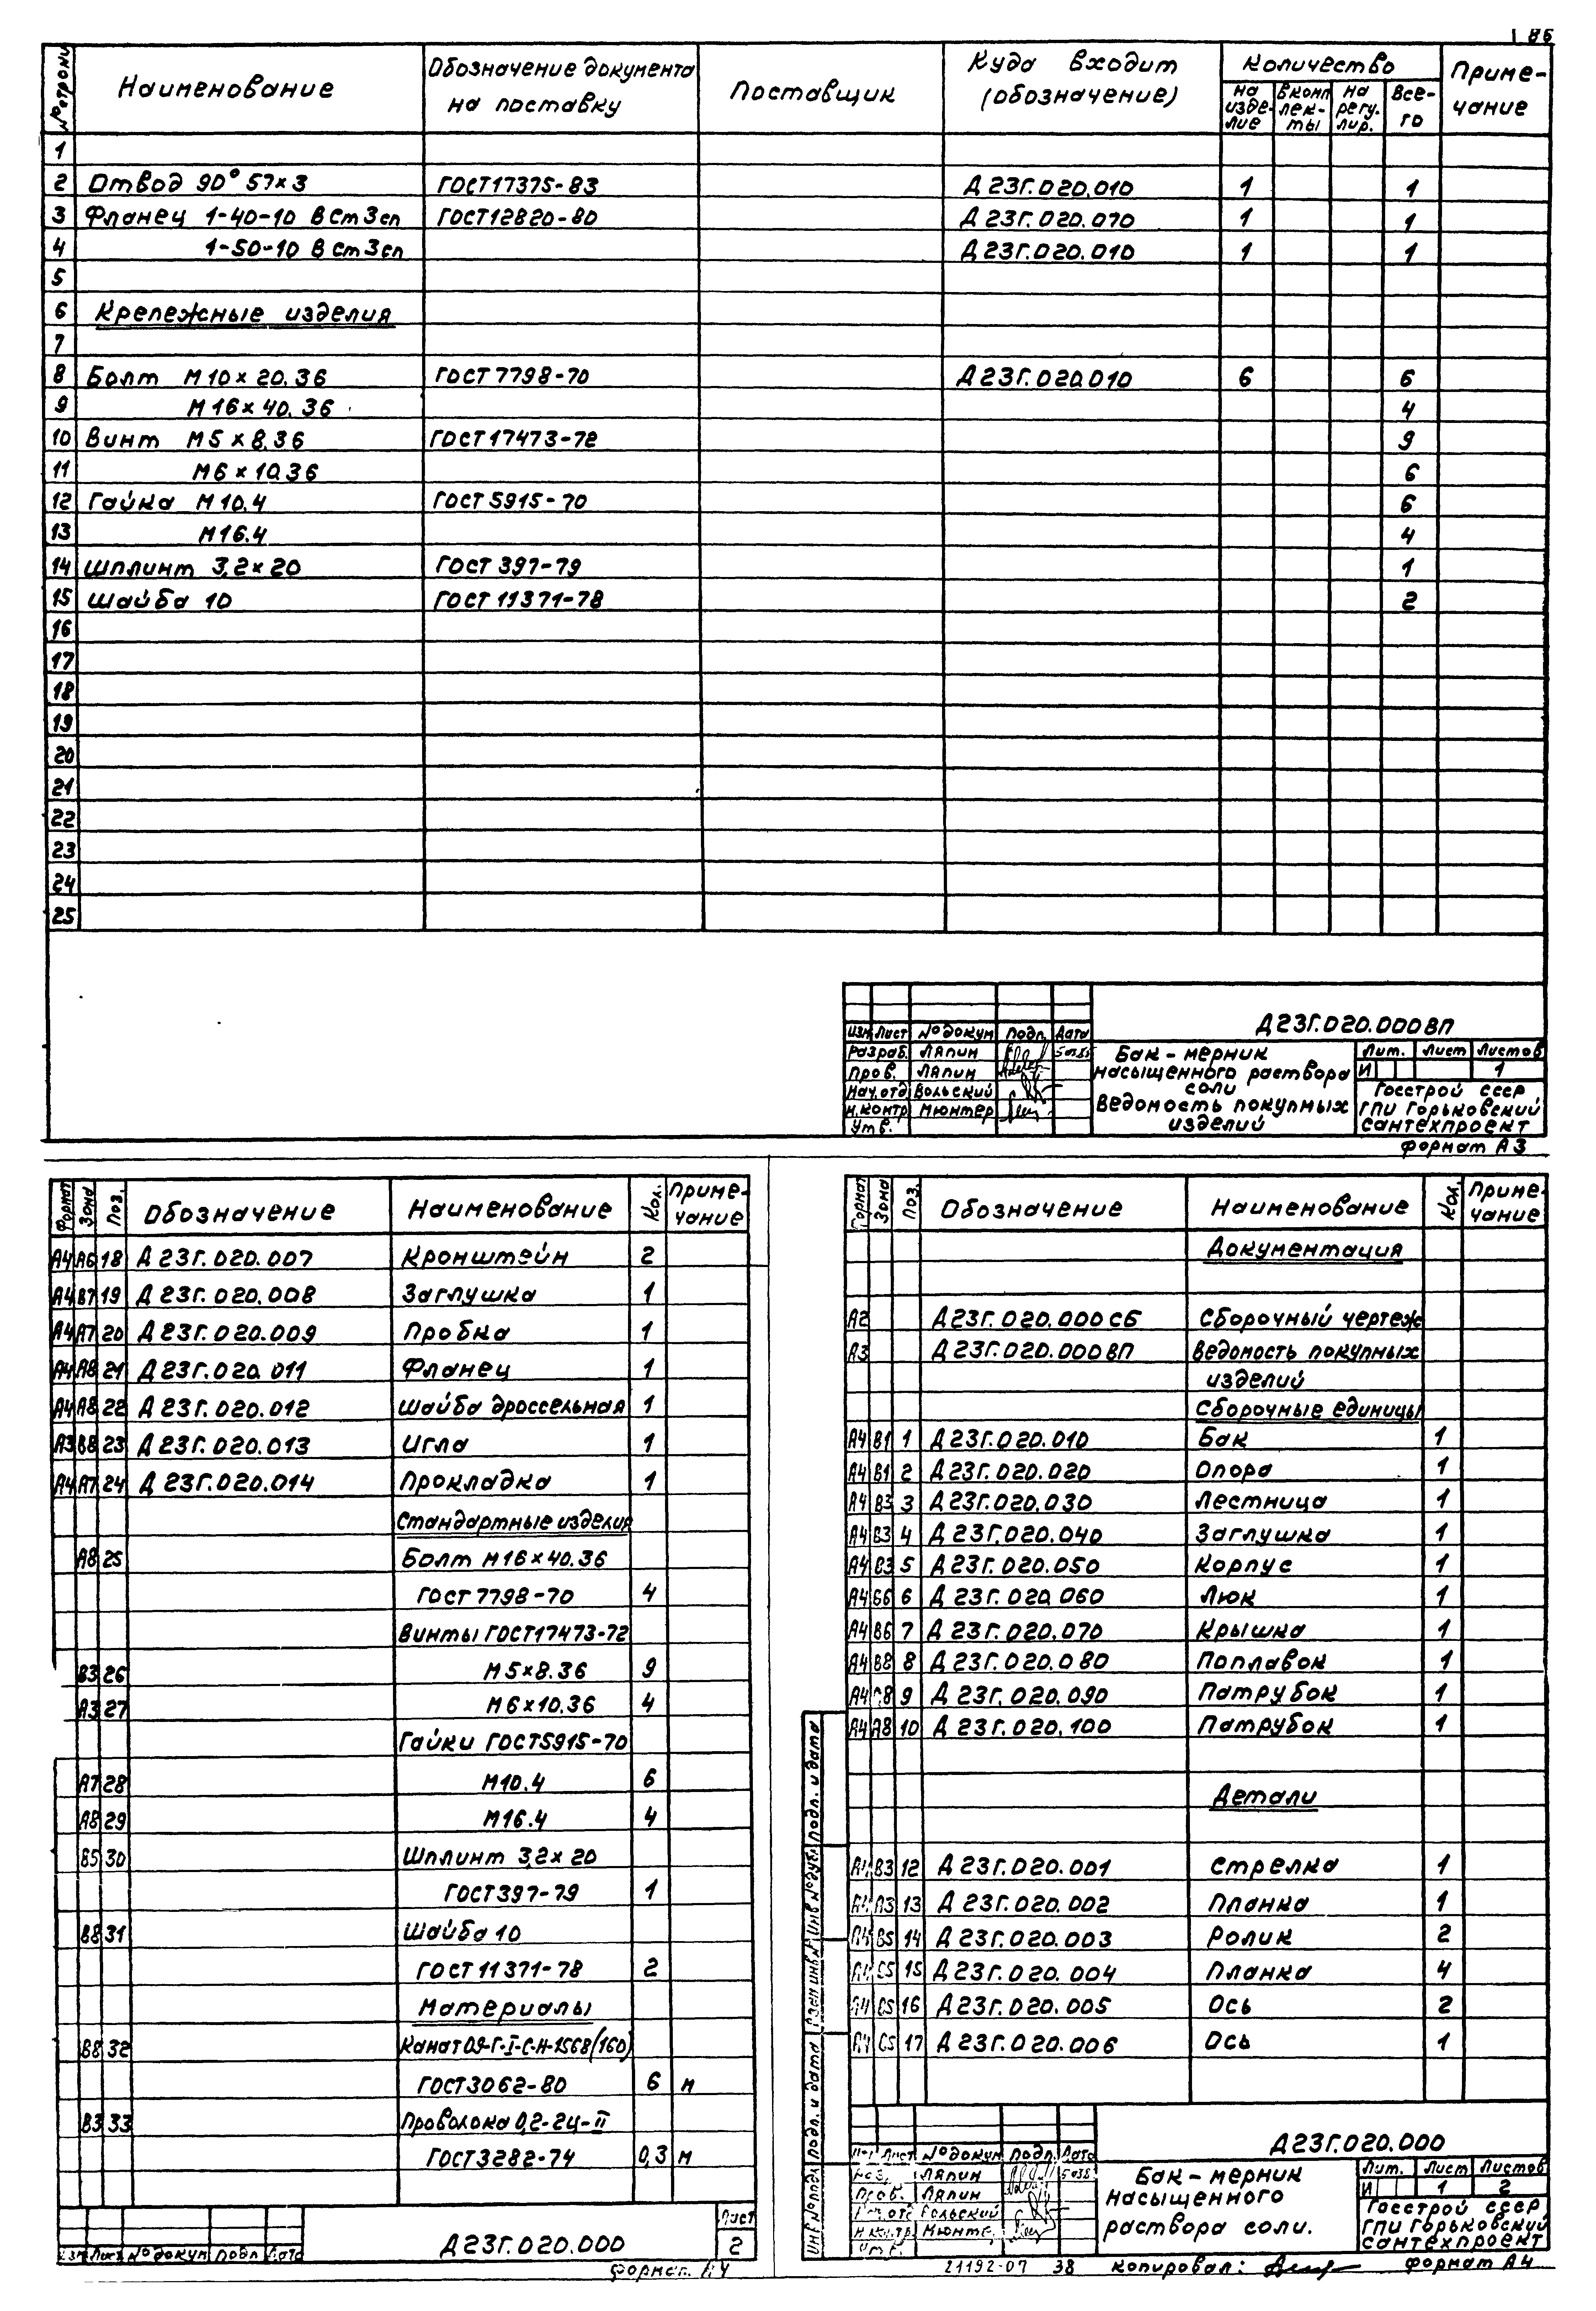 1 86
№ строки Наименование Обозначение документа на поставку Поставщик Куда входит (обозначение) Количество Приме-чание
на изде-лие в комплек-ты на регу-лир. Все-го
1
2 Отвод 90° 57×3 ГОСТ17375-83 Д23Г.020.010 1 1
3 Фланец 1-40-10 ВСт3сп ГОСТ12820-80 Д23Г.020.070 1 1
4 1-50-10 ВСт3сп Д23Г.020.010 1 1
5
6 Крепежные изделия
7
8 Болт М10×20.36 ГОСТ7798-70 Д23Г.020.010 6 6
9 М16×40.36 4
10 Винт М5×8.36 ГОСТ17473-72 9
11 М6×10.36 6
12 Гайка М10.4 ГОСТ5915-70 6
13 М16.4 4
14 Шплинт 3,2×20 ГОСТ397-79 1
15 Шайба 10 ГОСТ11371-78 2
16
17
18
19
20
21
22
23
24
25
Д23Г.020.000ВП
Изм Лист № докум Подп. Дата
Разраб. Ляпин
Пров. Ляпин
Нач.отд Вольский
Н.контр Мюнтер
Утв.
Бак-мерник
насыщенного раствора
соли
Ведомость покупных
изделий
Лит. Лист Листов
И 1
Госстрой СССР
ГПИ Горьковский
Сантехпроект
Формат А3
Формат Зона Поз. Обозначение Наименование Кол. Приме-чание
А4 А6 18 Д23Г.020.007 Кронштейн 2
А4 В7 19 Д23Г.020.008 Заглушка 1
А4 А7 20 Д23Г.020.009 Пробка 1
А4 А8 21 Д23Г.020.011 Фланец 1
А4 А8 22 Д23Г.020.012 Шайба дроссельная 1
А3 В8 23 Д23Г.020.013 Игла 1
А4 А7 24 Д23Г.020.014 Прокладка 1
Стандартные изделия
А8 25 Болт М16×40.36
ГОСТ7798-70 4
Винты ГОСТ17473-72
В3 26 М5×8.36 9
А3 27 М6×10.36 4
Гайки ГОСТ5915-70
А7 28 М10.4 6
А8 29 М16.4 4
Б5 30 Шплинт 3,2×20
ГОСТ397-79 1
В8 31 Шайба 10
ГОСТ11371-78 2
Материалы
В8 32 Канат 0,9-Г-I-С-Н-1568(160)
ГОСТ3062-80 6 м
В3 33 Проволока 0,2-2Ц-II
ГОСТ3282-74 0,3 м
Изм Лист № докум Подп Дата
Д23Г.020.000
Лист
2
Формат А4
Формат Зона Поз. Обозначение Наименование Кол. Приме-чание
Документация
А2 Д23Г.020.000СБ Сборочный чертеж
А3 Д23Г.020.000ВП Ведомость покупных
изделий
Сборочные единицы
А4 В1 1 Д23Г.020.010 Бак 1
А4 В1 2 Д23Г.020.020 Опора 1
А4 В3 3 Д23Г.020.030 Лестница 1
А4 В3 4 Д23Г.020.040 Заглушка 1
А4 В3 5 Д23Г.020.050 Корпус 1
А4 Б6 6 Д23Г.020.060 Люк 1
А4 В6 7 Д23Г.020.070 Крышка 1
А4 В8 8 Д23Г.020.080 Поплавок 1
А4 9 Д23Г.020.090 Патрубок 1
А4 А8 10 Д23Г.020.100 Патрубок 1
Детали
В3 12 Д23Г.020.001 Стрелка 1
А3 13 Д23Г.020.002 Планка 1
Б5 14 Д23Г.020.003 Ролик 2
С5 15 Д23Г.020.004 Планка 4
С5 16 Д23Г.020.005 Ось 2
С5 17 Д23Г.020.006 Ось 1
Подп. и дата
Инв № дубл
Взам инв №
Подп. и дата
Инв № подл
Д23Г.020.000
Лист № докум Подп. Дата
Ляпин
Пров. Ляпин
Вольский
Н.контр. Мюнте
Утв.
Бак-мерник
насыщенного
раствора соли.
Лит. Лист Листов
И 1 2
Госстрой СССР
ГПИ Горьковский
Сантехпроект
21192-07 38 Копировал: Формат А4